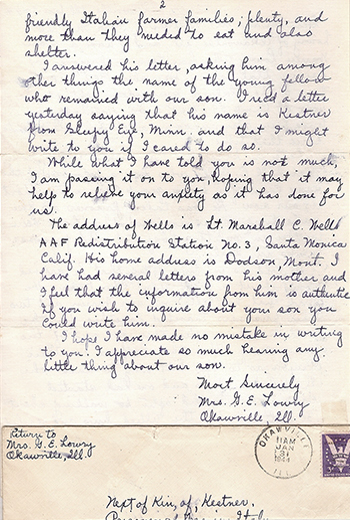 2
friendly Italian farmer families; plenty, and
more than they needed to eat and also
shelter.
I answered his letter, asking him among
other things the name of the young fellow
who remained with our son. I rec'd a letter
yesterday saying that his name is Kestner
from Sleepy Eye, Minn. and that I might
write to you if I cared to do so.
While what I have told you is not much,
I am passing it on to you, hoping that it may
help to relieve your anxiety as it has done for
us.
The address of Wells is Lt. Marshall C. Wells
AAF Redistribution Station No. 3, Santa Monica
Calif. His home address is Dodson, Mont. I
have had several letters from his mother and
I feel that the information from him is authentic
If you wish to inquire about your son you
could write him.
I hope I have made no mistake in writing
to you. I appreciate so much hearing any
little thing about our son.
Most Sincerely
Mrs. G. E. Lowry
Okawville, Ill.
Return to
Mrs. G. E. Lowry
Okawville, Ill.
OKAWVILLE
11 AM
JAN
31
ILL.
Next of Kin, of, Kestner,